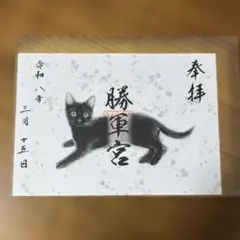 奉拝
勝軍宮
令和八年
三月十五日